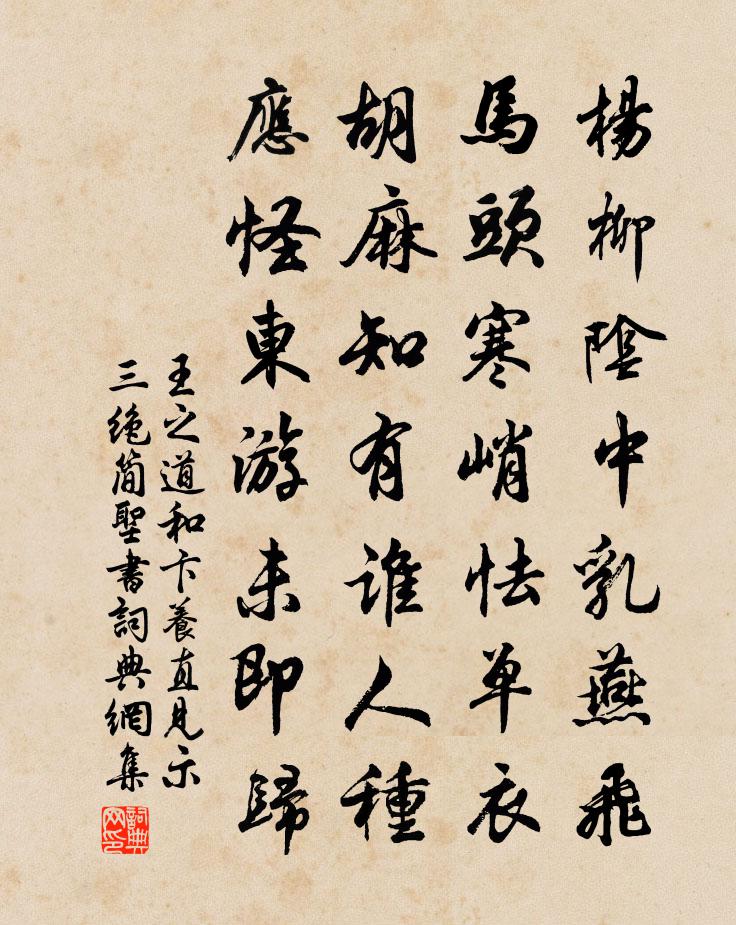 楊柳陰中乳燕飛
馬頭寒峭怯單衣
胡麻知有誰人種
應怪東游未即歸
王之道和卞養直見示
三絶簡聖書詞典網集
詞典网印